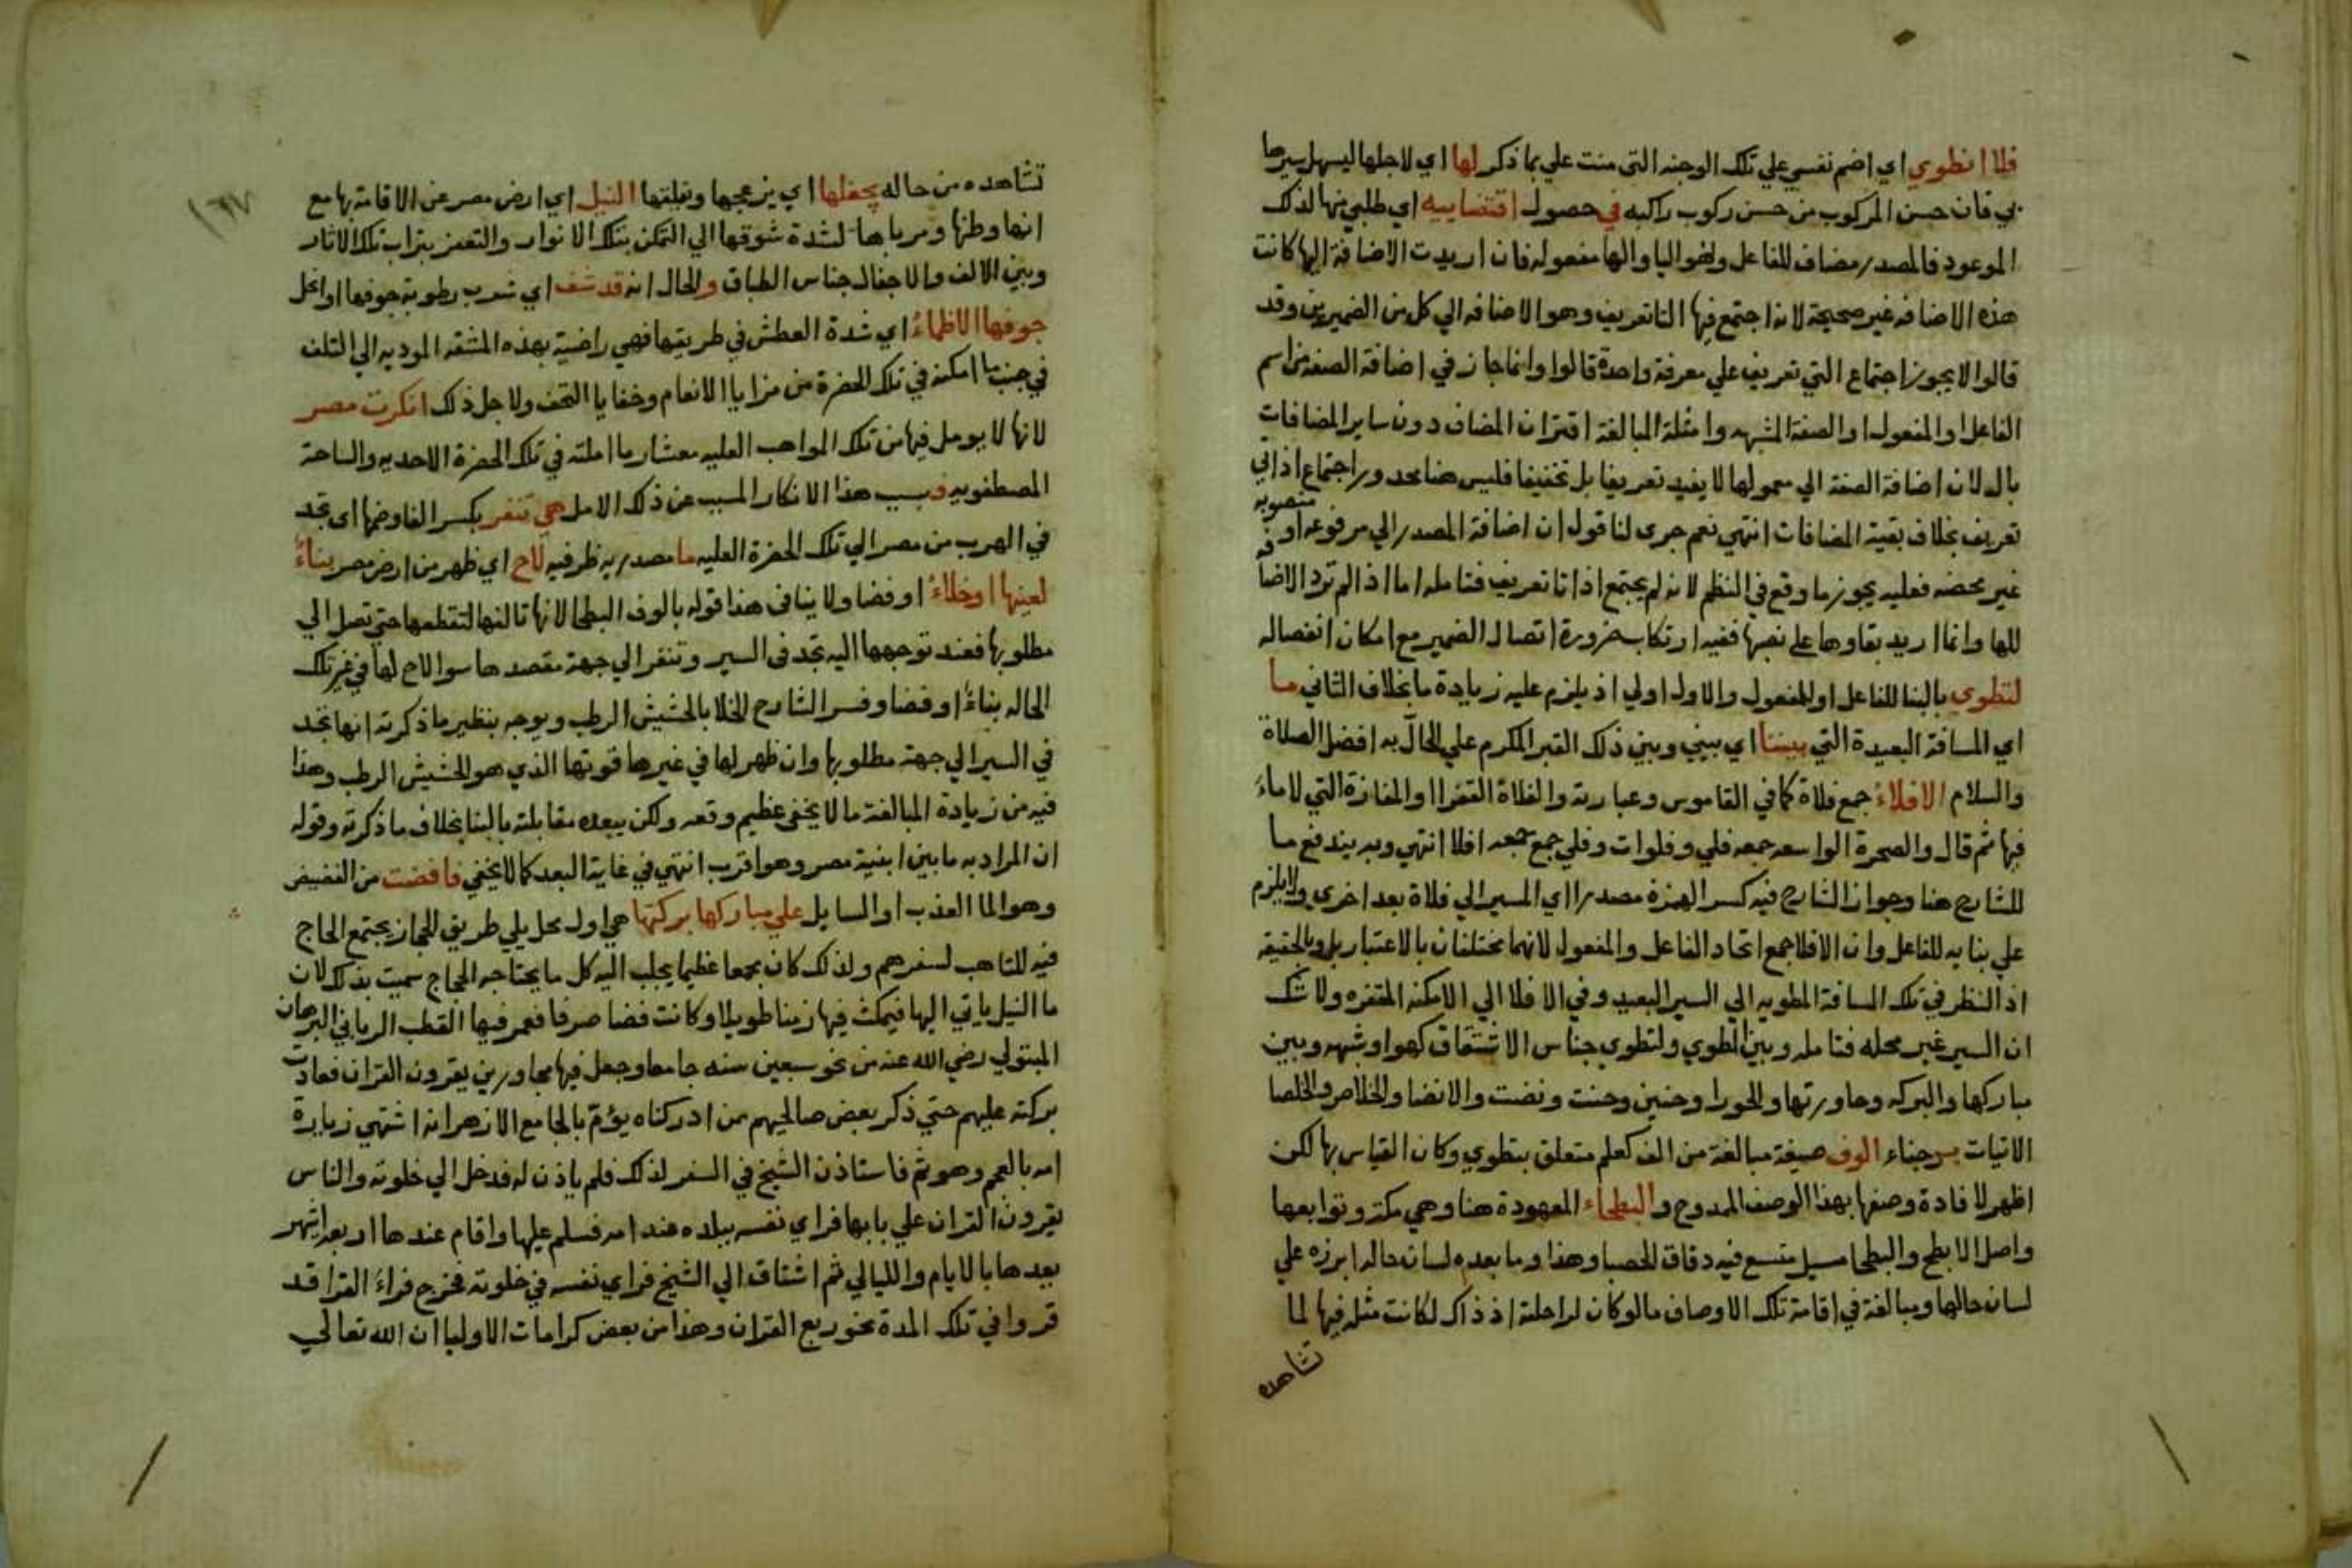 فلا انطوي اي اضم نفسي علي تلك الوجنه التي منت علي بما ذكر لها اي لاجلها ليسهل سيرها
بي فان حسن المركوب من حسن ركوب راكبه في حصول اقتضاييه اي طلبي منها لذلك
الموعود فالمصدر مضاف للفاعل وهو اليا والها مفعوله فان اريدت الاضافة اليها كانت
هذه الاضافه غير صحيحة لانه اجتمع فيها التا تعريف وهو الاضافه الي كل من الضميرين وقد
قالوا لا يجوز اجتماع التي تعريف علي معرفة واحدة قالوا وانما جاز في اضافة الصفة من اسم
الفاعل او المفعول او الصفة المشبهه وامثلة المبالغة اقتران المضاف دون ساير المضافات
بال لان اضافة الصفة الي معمولها لا يفيد تعريفا بل تخفيفا فليس هنا محدور اجتماع اذاتي
تعريف بخلاف بقية المضافات انتهي نعم جري لنا قول ان اضافة المصدر الي مرفوعه او منصوبه
غير محضه فعليه يجوز ما وقع في النظم لانه لم يجتمع اذاتا تعريف فتامله اما اذا لم ترد الاضافه
للها وانما اريد بقاوها علي نصبها ففيه ارتكاب ضرورة اتصال الضمير مع امكان انفصاله
لتطوي بالبنا للفاعل او للمفعول والاول اولي اذ يلزم عليه زيادة ما بخلاف الثاني ما
اي المسافة البعيدة التي بيننا اي بيني وبين ذلك القبر المكرم علي الحالّ به افضل الصلاة
والسلام الافلاء جمع فلاة كما في القاموس وعبارته والفلاة القفرا او المفازة التي لا ماء
فيها ثم قال والصحرة الواسعه جمعه فلي وفلوات وفلي جمع جمعه افلا انتهي وبه يندفع ما
للشارح هنا وجواز الشارح فيه كسر الهمزة مصدرا اي المسير الي فلاة بعد اخري ولا يلزم
علي بنايه للفاعل وان الافلا جمع اتحاد الفاعل والمفعول لانهما مختلفان بالاعتبار بل وبالحقيقه
اذ النظر في تلك المسافة المطويه الي السير البعيد وفي الافلا الي الامكنه المقفره ولا شك
ان السير غير محله فتامله وبين انطوي ولتطوي جناس الاشتقاق كهو او شبهه وبين
مباركها والبركه وحاورتها والحورا وحنين وحنت ونضت والانضا والخلاص والخلصا
الاتيات بوجناء الوف صيغة مبالغة من الف كعلم متعلق بتطوي وكان القياس بها لكن
اظهر لافادة وصفها بهذا الوصف الممدوح والبطحاء المعهودة هنا وهي مكة وتوابعها
واصل الابطح والبطحا مسيل متسع فيه دقاق الحصبا وهذا وما بعده لسان حاله ابرزه علي
لسان حالها ومبالغة في اقامة تلك الاوصاف ما لو كان لراحلة اذ ذاك لكانت مثله فيها لما
تشاهده
١٦٧
تشاهده من حاله يجفلها اي يزعجها ونقلتها النيل اي ارض مصر عن الاقامة بها مع
انها وطنها ومرباها لشدة شوقها الي التمكن بتلك الانوار والتعفر بتراب تلك الاثار
وبين الالف والاجفال جناس الطباق والحال انه قد شف اي شرب رطوبة جوفها او انحل
جوفها الاظماءُ اي شدة العطش في طريقها فهي راضية بهذه المشقه الموديه الي التلف
في جنب ما امكنه في تلك الحضرة من مزايا الانعام وخفايا التحف ولاجل ذلك انكرت مصر
لانها لا يومل فيها من تلك المواهب العليه معشار ما املته في تلك الحضرة الاحديه والساحة
المصطفويه فبسبب هذا الانكار المسبب عن ذلك الامل هي تنفر بكسر الفا وضمها اي تجد
في الهرب من مصر الي تلك الحضرة العليه ما مصدريه ظرفيه لاح اي ظهر من ارض مصر بناءُ
لعينها او خلاءُ او فضا ولا ينافي هذا قوله بالوف البطحا لانها تالفها لتقطعها حتي تصل الي
مطلوبها فعند توجهها اليه تجد في السير وتنفر الي جهة مقصدها سوا لاح لها في غير تلك
الحاله بناءُ او فضا وفسر الشارح الخلا بالحشيش الرطب ويوجه بنظير ما ذكرته انها تجد
في السير الي جهة مطلوبها وان ظهر لها في غيرها قوتها الذي هو الحشيش الرطب وهذا
فيه من زيادة المبالغة ما لا يخفي عظيم وقعه ولكن يبعده مقابلته بالبنا بخلاف ما ذكرته وقوله
ان المراد به ما بين ابنية مصر وهو اقرب انتهي في غاية البعد كما لا يخفي فافضت من الفضيض
وهو الما العذب او السايل علي مباركها بركتها هي اول محل يلي طريق الحجاز يجتمع الحاج
فيه للتاهب لسفرهم ولذلك كان مجمعا عظيما يجلب اليه كل ما يحتاجه الحجاج سميت بذلك لان
ما النيل ياتي اليها فيمكث فيها زمنا طويلا وكانت فضا صرفا فعمر فيها القطب الرباني البرهان
المتبولي رضي الله عنه من نحو سبعين سنه جامعا وجعل فيها مجاورين يقرون القران فعادت
بركته عليهم حتي ذكر بعض صالحيهم ممن ادركناه يؤمّ بالجامع الازهر انه اشتهي زيارة
امه بالعجم وهو ثم فاستاذن الشيخ في السفر لذلك فلم ياذن له فدخل الي خلوته والناس
يقرون القران علي بابها فراي نفسه ببلاده عند امه فسلم عليها واقام عندها اربعة اشهر
بعدها بالايام والليالي ثم اشتاق الي الشيخ فراي نفسه في خلوته فخرج فراءَ القرا قد
قروا في تلك المدة نحو ربع القران وهذا من بعض كرامات الاوليا ان الله تعالي